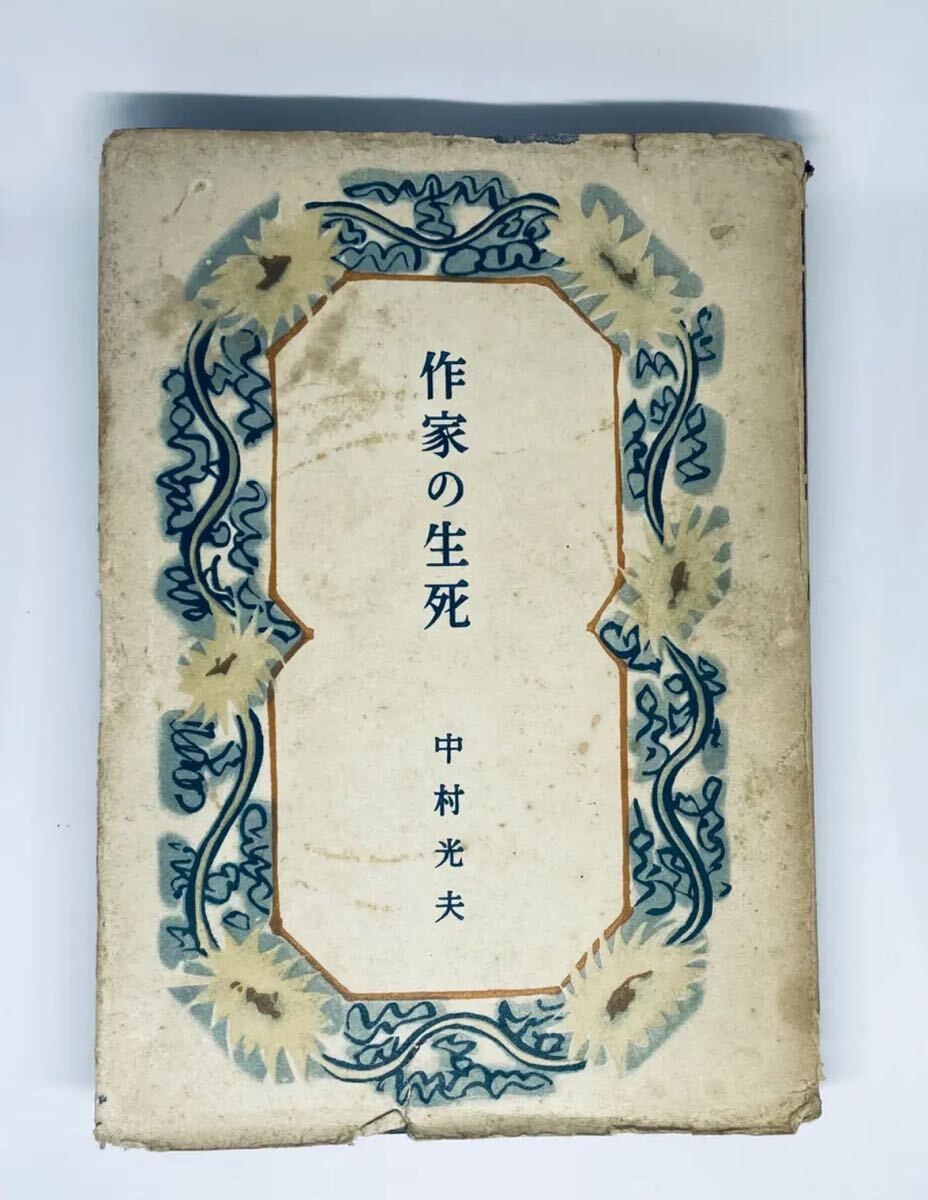 作家の生死
中村光夫